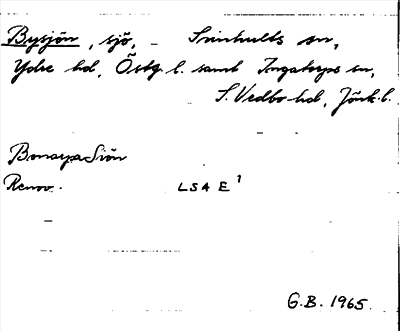 Bysjön, sjö, – Svinhults sn,
Ydre hd, Östg. l. samt Ingatorps sn,
S. Vedbo hd, Jönk. l.
Bonarpa Siön
Renov. LSA E¹
G.B. 1965.